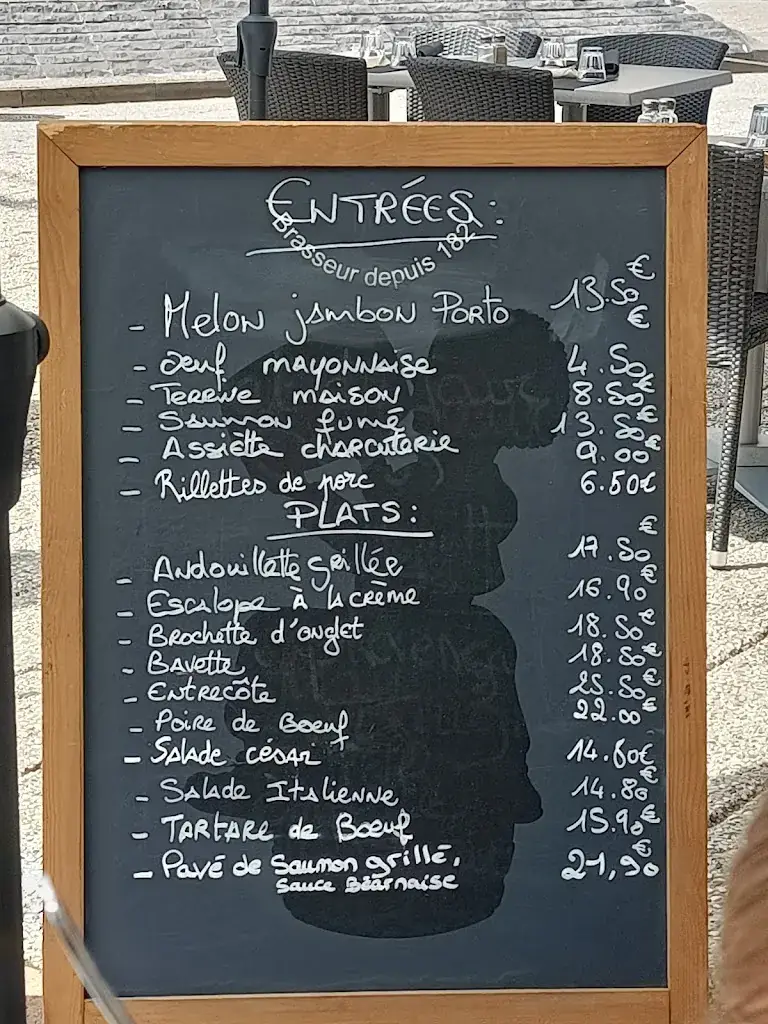 ENTRÉES :
Brasseur depuis 182
- Melon jambon Porto 13.50€
€
- Oeuf mayonnaise 4.50
- Terrine maison 8.50€
- Saumon fumé 13.50€
- Assiette charcuterie 9.00€
- Rillettes de porc 6.50€
PLATS :
- Andouillette grillée 17.50€
- Escalope à la crème 16.90€
- Brochette d'onglet 18.50€
- Bavette 18.50€
- Entrecôte 25.50€
- Poire de Boeuf 22.00€
- Salade césar 14.60€
- Salade Italienne 14.80€
- Tartare de Boeuf 15.90€
- Pavé de Saumon grillé, 21,90€
Sauce Béarnaise